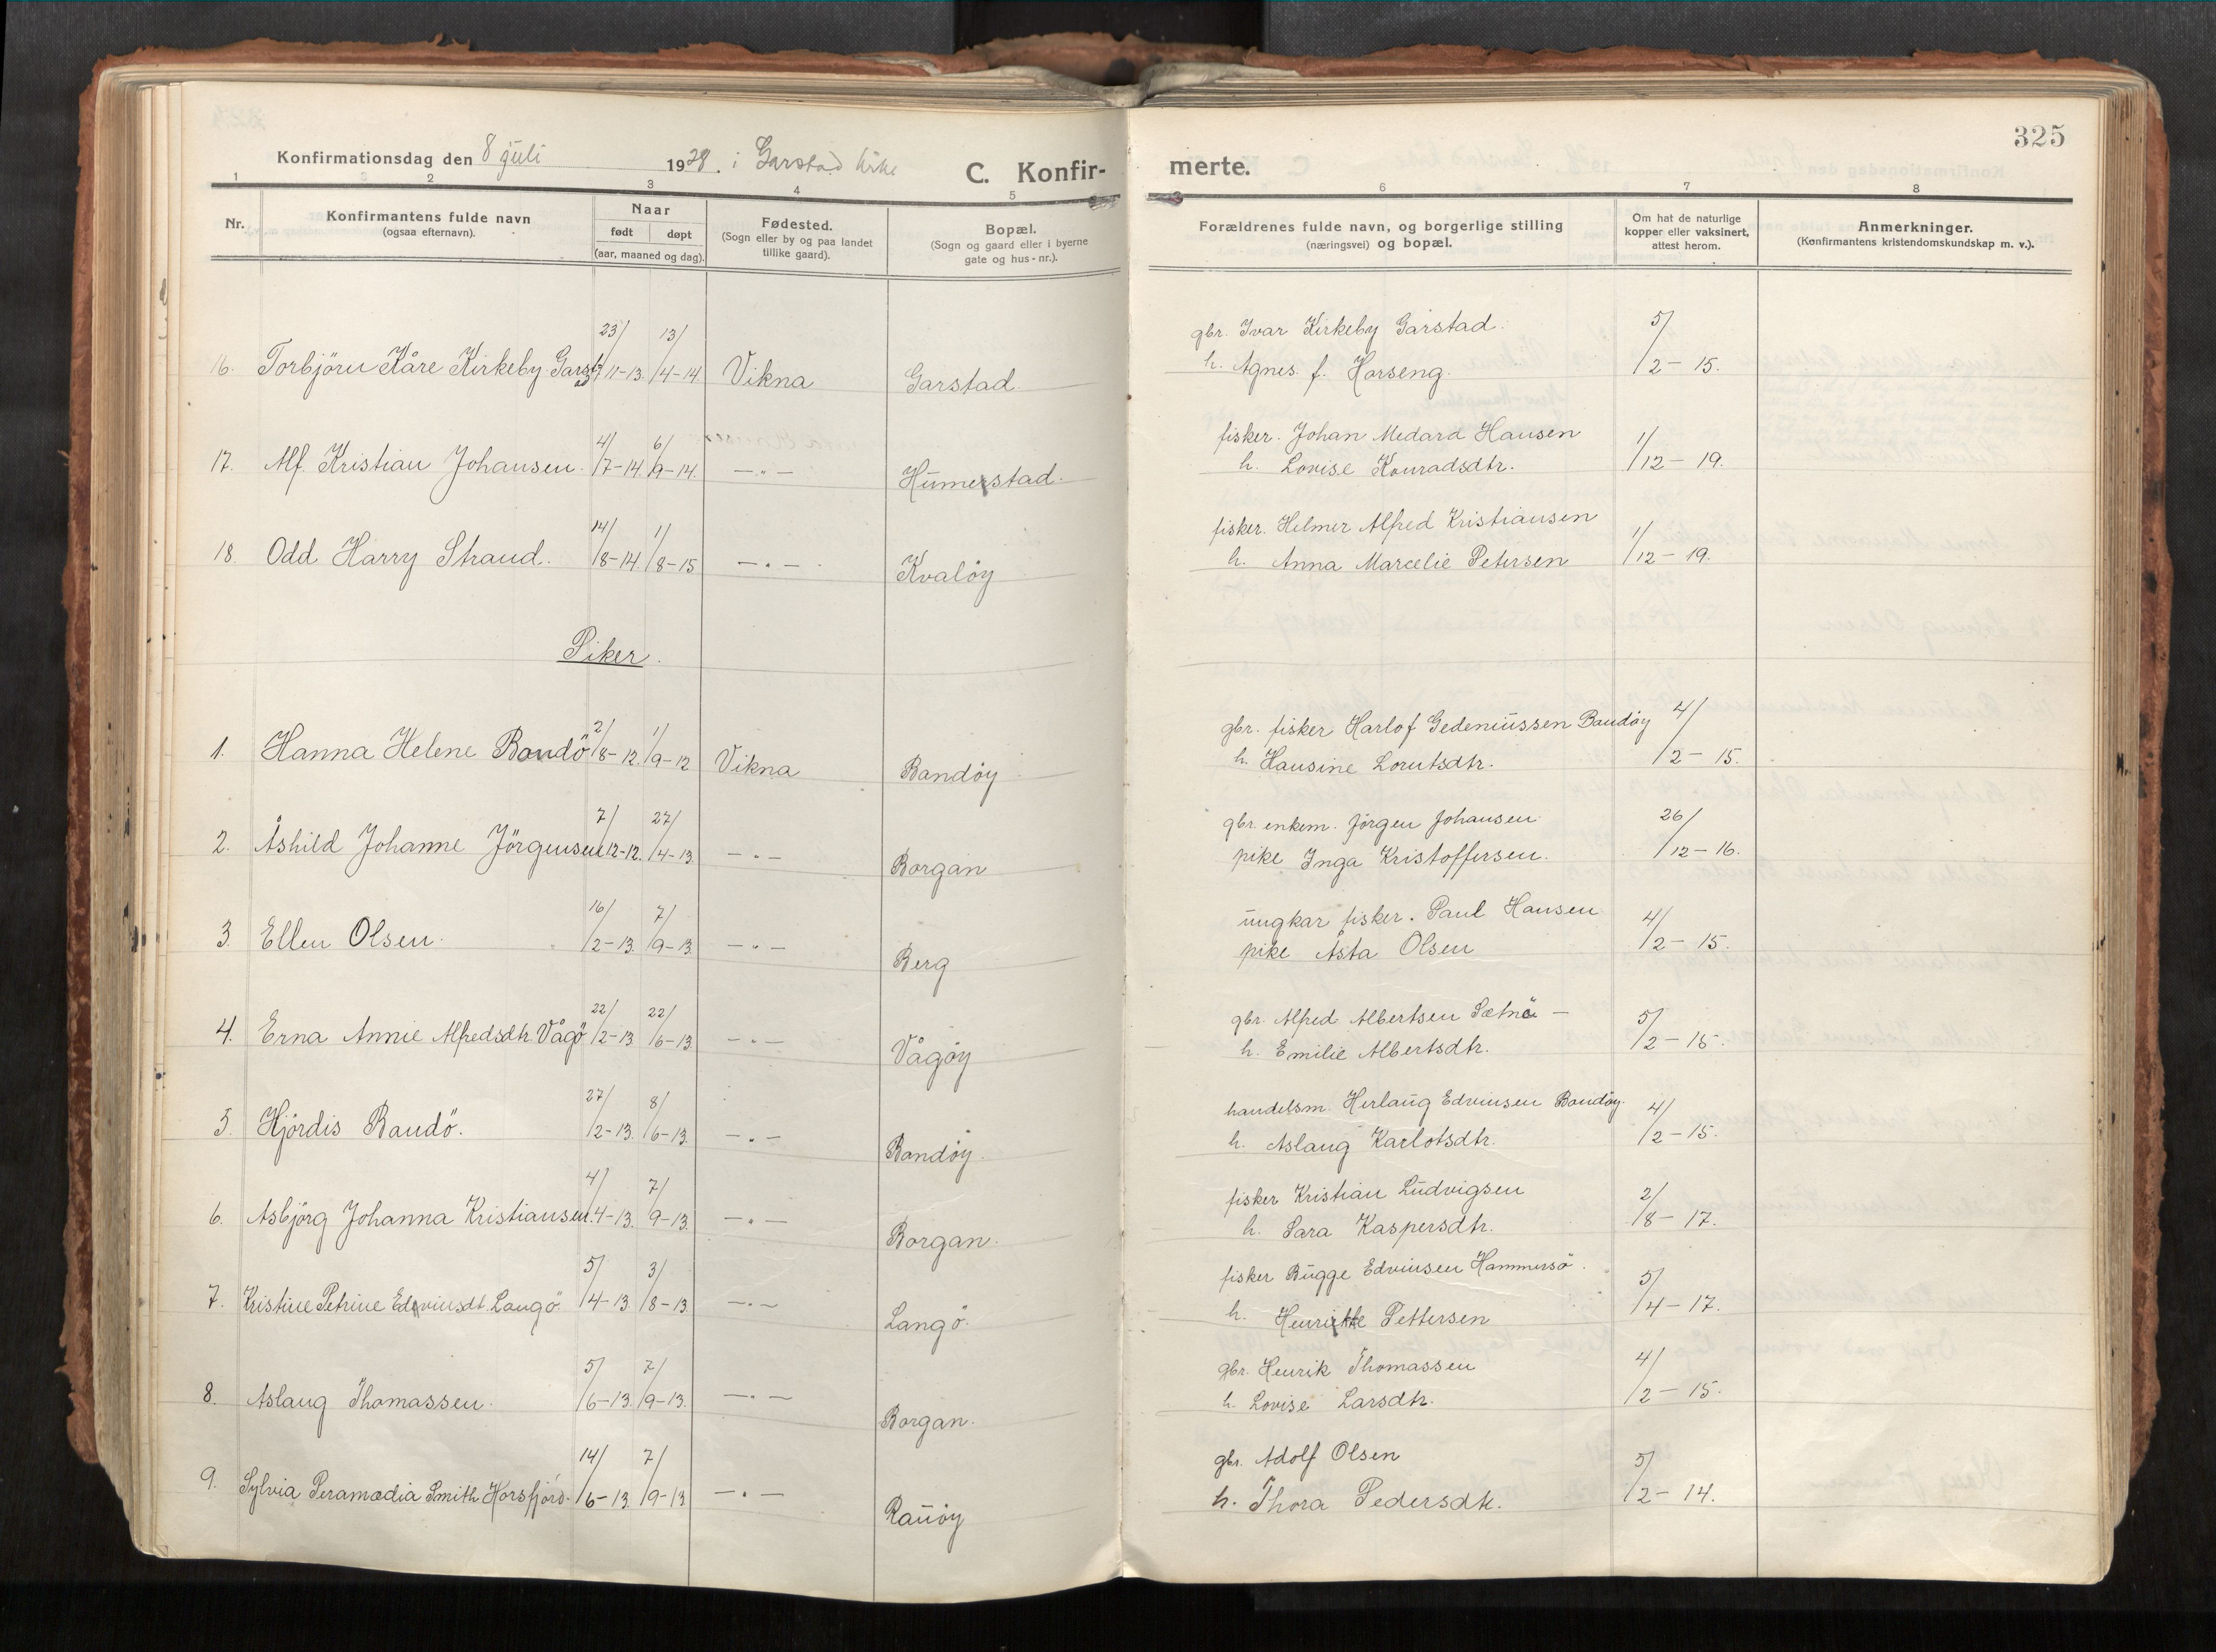 325
Konfirmationsdag den 8 juli 1928. i Garstad kirke
C. Konfir-
merte.
1 2 3 4 5 6 7 8
Nr.
Konfirmantens fulde navn
(ogsaa efternavn).
Naar
født døpt
(aar, maaned og dag).
Fødested.
(Sogn eller by og paa landet
tillike gaard).
Bopæl.
(Sogn og gaard eller i byerne
gate og hus-nr.).
Forældrenes fulde navn, og borgerlige stilling
(næringsvei) og bopæl.
Om hat de naturlige
kopper eller vaksinert,
attest herom.
Anmerkninger.
(Konfirmantens kristendomskundskap m. v.).
16. Torbjörn Kåre Kirkeby Garstad 23/11-13. 13/4-14 Vikna Garstad
gbr. Ivar Kirkeby Garstad. 5/2-15.
h. Agnes f. Horseng.
17. Alf Kristian Johansen. 4/7-14. 6/9-14. —"— Humerstad.
fisker. Johan Medard Hansen 1/12-19.
h. Lovise Konradsdtr.
18. Odd Harry Strand. 14/8-14. 1/8-15 —"— Kvaløy
fisker. Helmer Alfred Kristiansen 1/12-19.
h. Anna Marcelie Petersen
Piker.
1. Hanna Helene Bondö 2/8-12. 1/9-12 Vikna Bandøy
gbr. fisker Harlof Gedeniussen Bandøy 4/2-15.
h. Hansine Lorntsdtr.
2. Åshild Johanne Jörgensen 7/12-12. 27/4-13. —"— Borgan
gbr. enkem. Jörgen Johansen 26/12-16.
pike Inga Kristoffersen.
3. Ellen Olsen. 16/2-13. 7/9-13. —"— Berg
ungkar fisker. Paul Hansen 4/2-15.
pike Åsta Olsen
4. Erna Annie Alfredsdtr. Vågö 22/2-13 22/6-13. —"— Vågøy
gbr. Alfred Albertsen Sætnö — 5/2-15.
h. Emilie Albertsdtr.
5. Hjördis Bandö. 27/2-13. 8/6-13. —"— Bondøy.
handelsm. Herlaug Edvinsen Bondøy. 4/2-15.
h. Aslaug Karlotsdtr.
6. Asbjörg Johanna Kristiansen. 4/4-13. 7/9-13. —"— Borgan.
fisker Kristian Ludvigsen 2/8-17.
h. Sara Kaspersdtr.
7. Kristine Petrine Edvinsdt. Langö 5/4-13. 3/8-13. —"— Langö.
fisker Bugge Edvinsen Hammersö. 5/4-17.
h. Henrikke Pettersen
8. Aslaug Thomassen. 5/6-13. 7/9-13. —"— Borgan.
gbr. Henrik Thomassen 4/2-15.
h. Lovise Larsdtr.
9. Sylvia Peramædia Smith Horsfjörd. 14/6-13. 7/9-13 —"— Rauøy
gbr. Adolf Olsen 5/2-14.
h. Thora Pedersdtr.